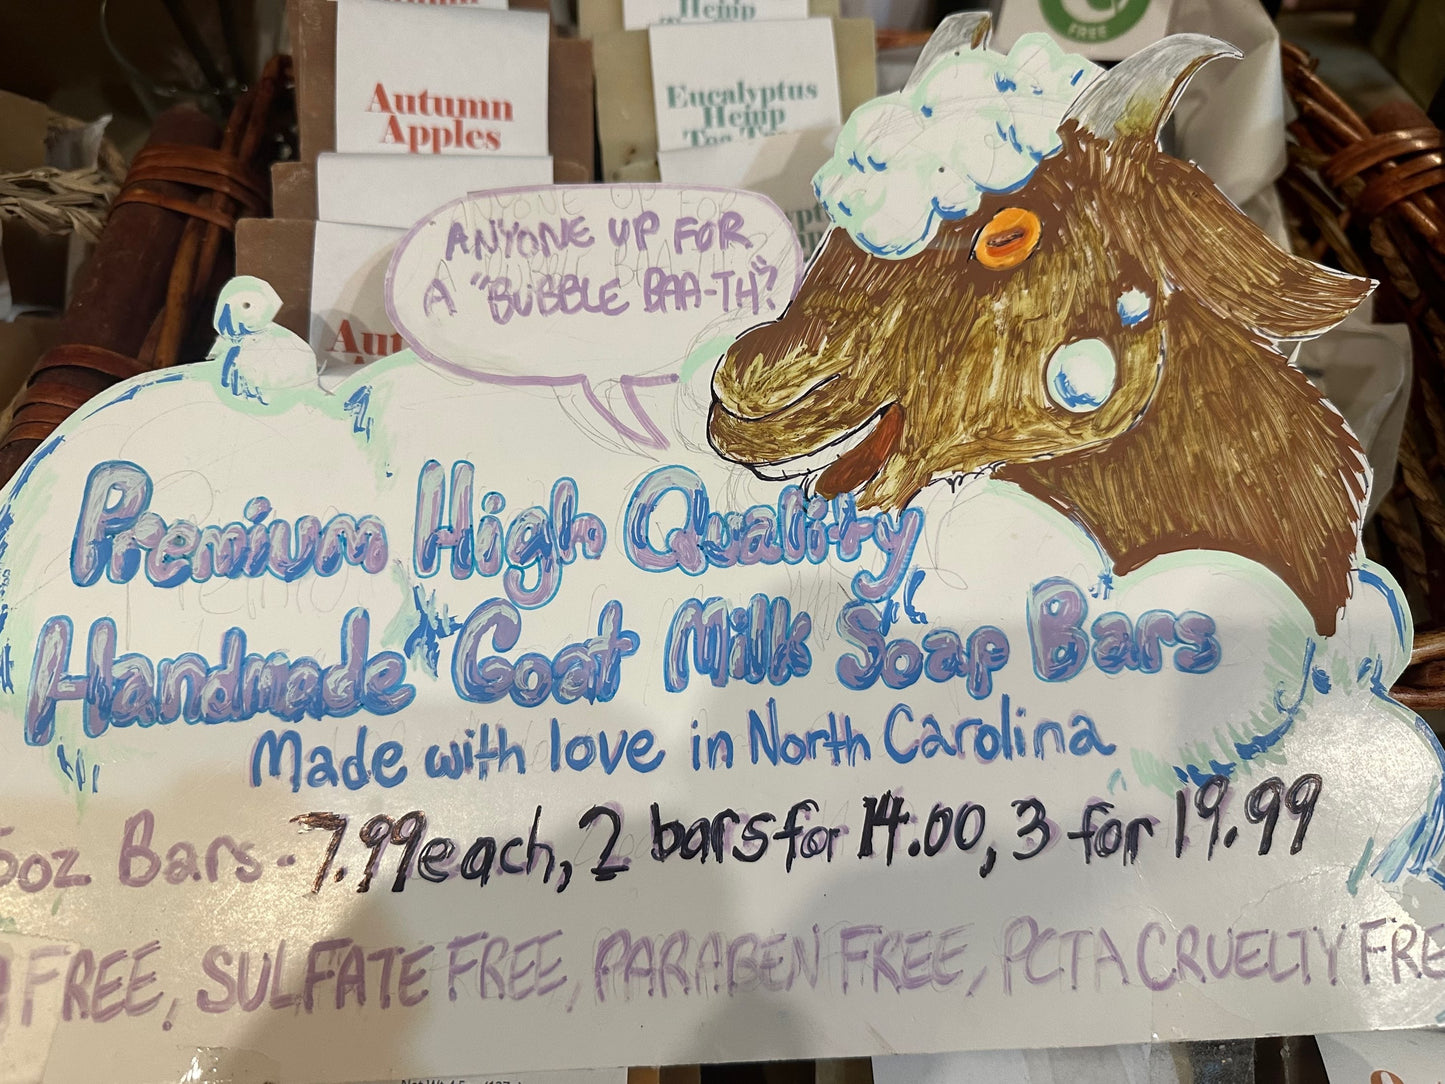 Autumn
Hemp
FREE
Autumn
Apples
Eucalyptus
Hemp
Tea Tree
ANYONE UP FOR
A "BUBBLE BAA-TH"?
Premium High Quality
Handmade Goat Milk Soap Bars
Made with love in North Carolina
5oz Bars - 7.99 each, 2 bars for 14.00, 3 for 19.99
FREE, SULFATE FREE, PARABEN FREE, PCTA CRUELTY FREE